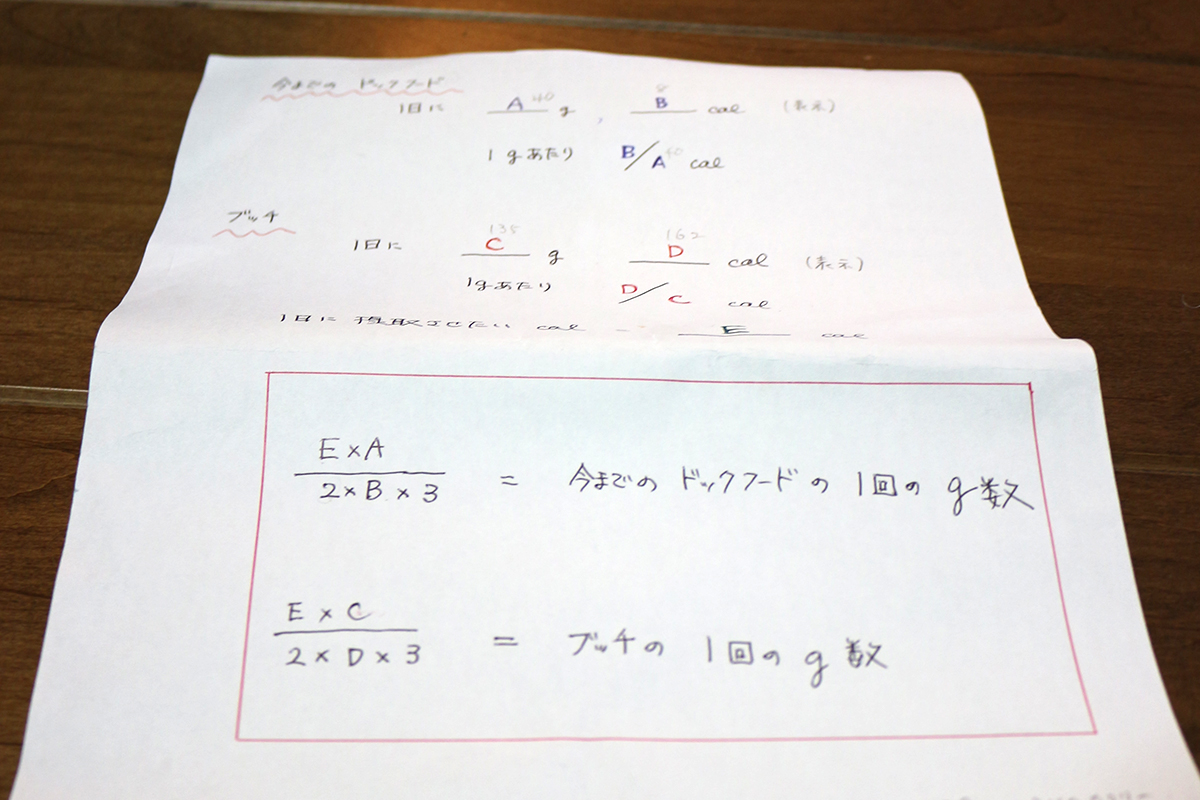 今までの ドックフード
1日に A 40 g , 8 B cal (表示)
1gあたり B/A 40 cal
ブッチ
1日に 135 C g 162 D cal (表示)
1gあたり D/C cal
1日に 摂取させたい cal -- E cal
E×A
2×B×3 = 今までの ドックフードの 1回の g数
E×C
2×D×3 = ブッチの 1回の g数